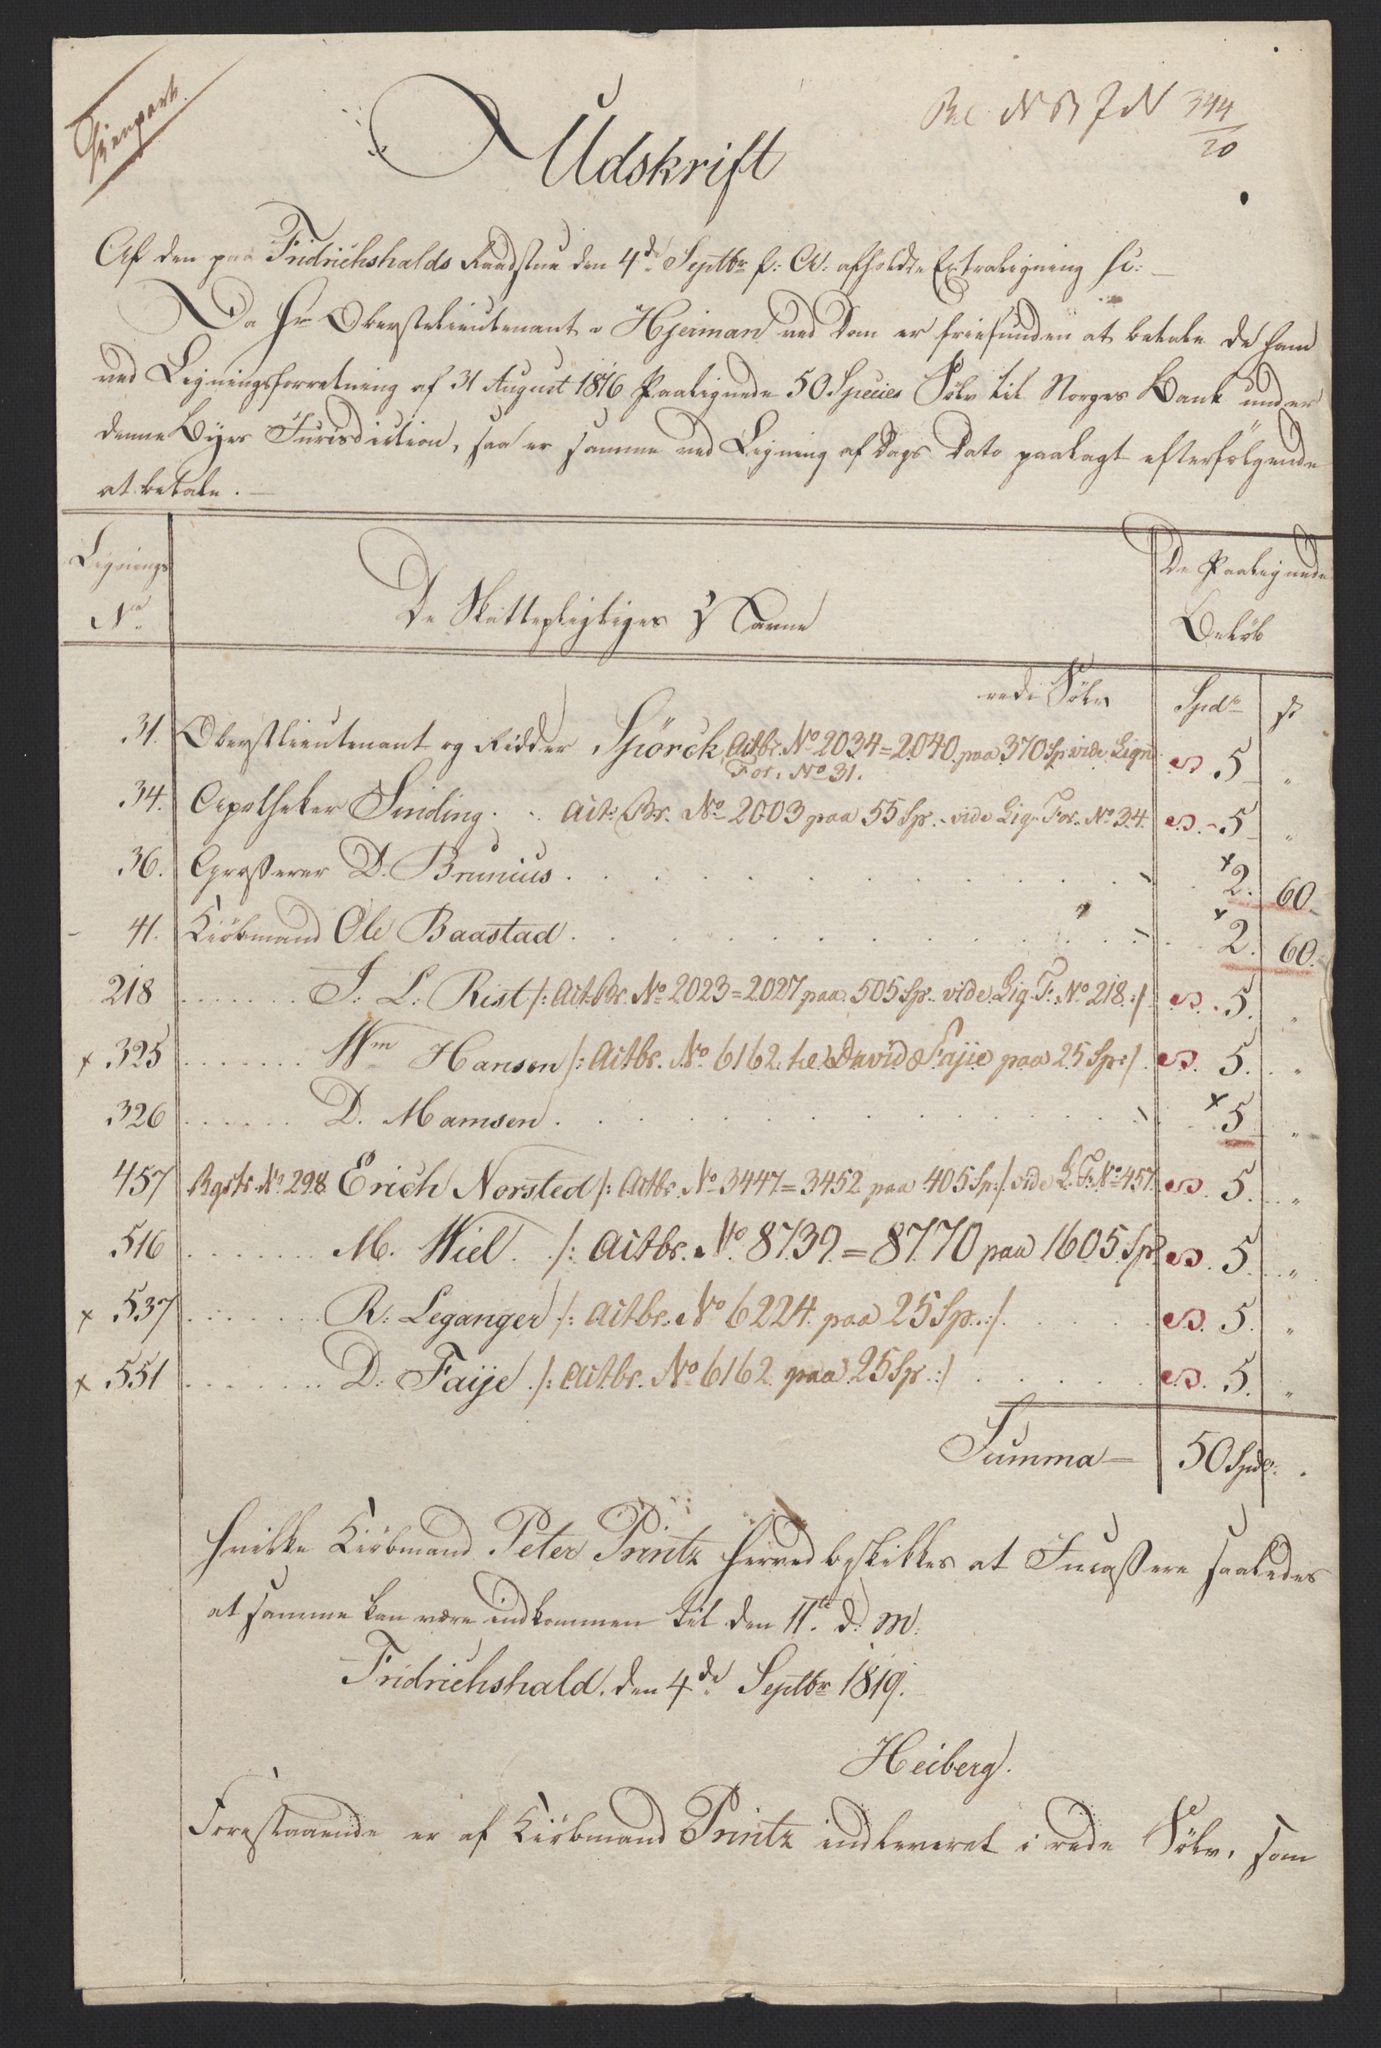 Gienpart.
344
20
Udskrift
Af den paa Fridrichshalds Raadstue den 4de Septbr h: A: afholdte Extraligning
Da Hr Oberstelieutenant v Hjerman ved Dom er friefunden at betale de ham
ved Ligningsforretning af 31 August 1816 Paalignede 50 Species Sølv til Norges Bank under
denne Byes Jurisdiction, saa er samme ved Ligning af Dags Dato paalagt efterfølgende
at betale. —
Lignings No
De Skattepligtiges Navne
De Paalignede Beløb
rede Sølv Spdr s
31. Oberstlieutenant og Ridder Spörck Actbr. No 2034=2040 paa 370 Sp vide Lign: 5 "
For. No 31.
34. Apotheker Sinding. Act: Br. No 2003 paa 55 Sp. - vide Lig. For. No 34. 5 "
36. Grosserer D. Brunius. x 2. 60.
41. Kiöbmand Ole Baastad. x 2. 60.
218 J. L. Rist /: Act Br. No 2023=2027 paa 505 Sp. vide Lig. F: No 218 :/ 5. "
x 325 Wm Hansen /: Actbr. No 6162 til David Fajie paa 25 Sp :/ 5. "
326 D. Mamsen. x 5 "
457 No 298 Erich Norsted /: Actbr. No 3447=3452 paa 405 Sp :/ vide L. F. No 457. 5. "
516 M. Wiel. /: Actbr. No 8739=8770 paa 1605 Sp 5. "
x 537 R: Leganger /: Actbr. No 6224 paa 25 Sp. :/ 5. "
x 551 D. Faije /: Actbr. No 6162 paa 25 Sp. :/ 5. "
Summa — 50 Spdr.
hvilke Kiöbmand Peter Printz herved beskikkes at Incassere saaledes
at samme kan være indkommen til den 11te d. M.
Fridrichshald. den 4de Septbr 1819.
Heiberg.
Forestaaende er af Kiöbmand Printz indleveret i rede Sølv, som